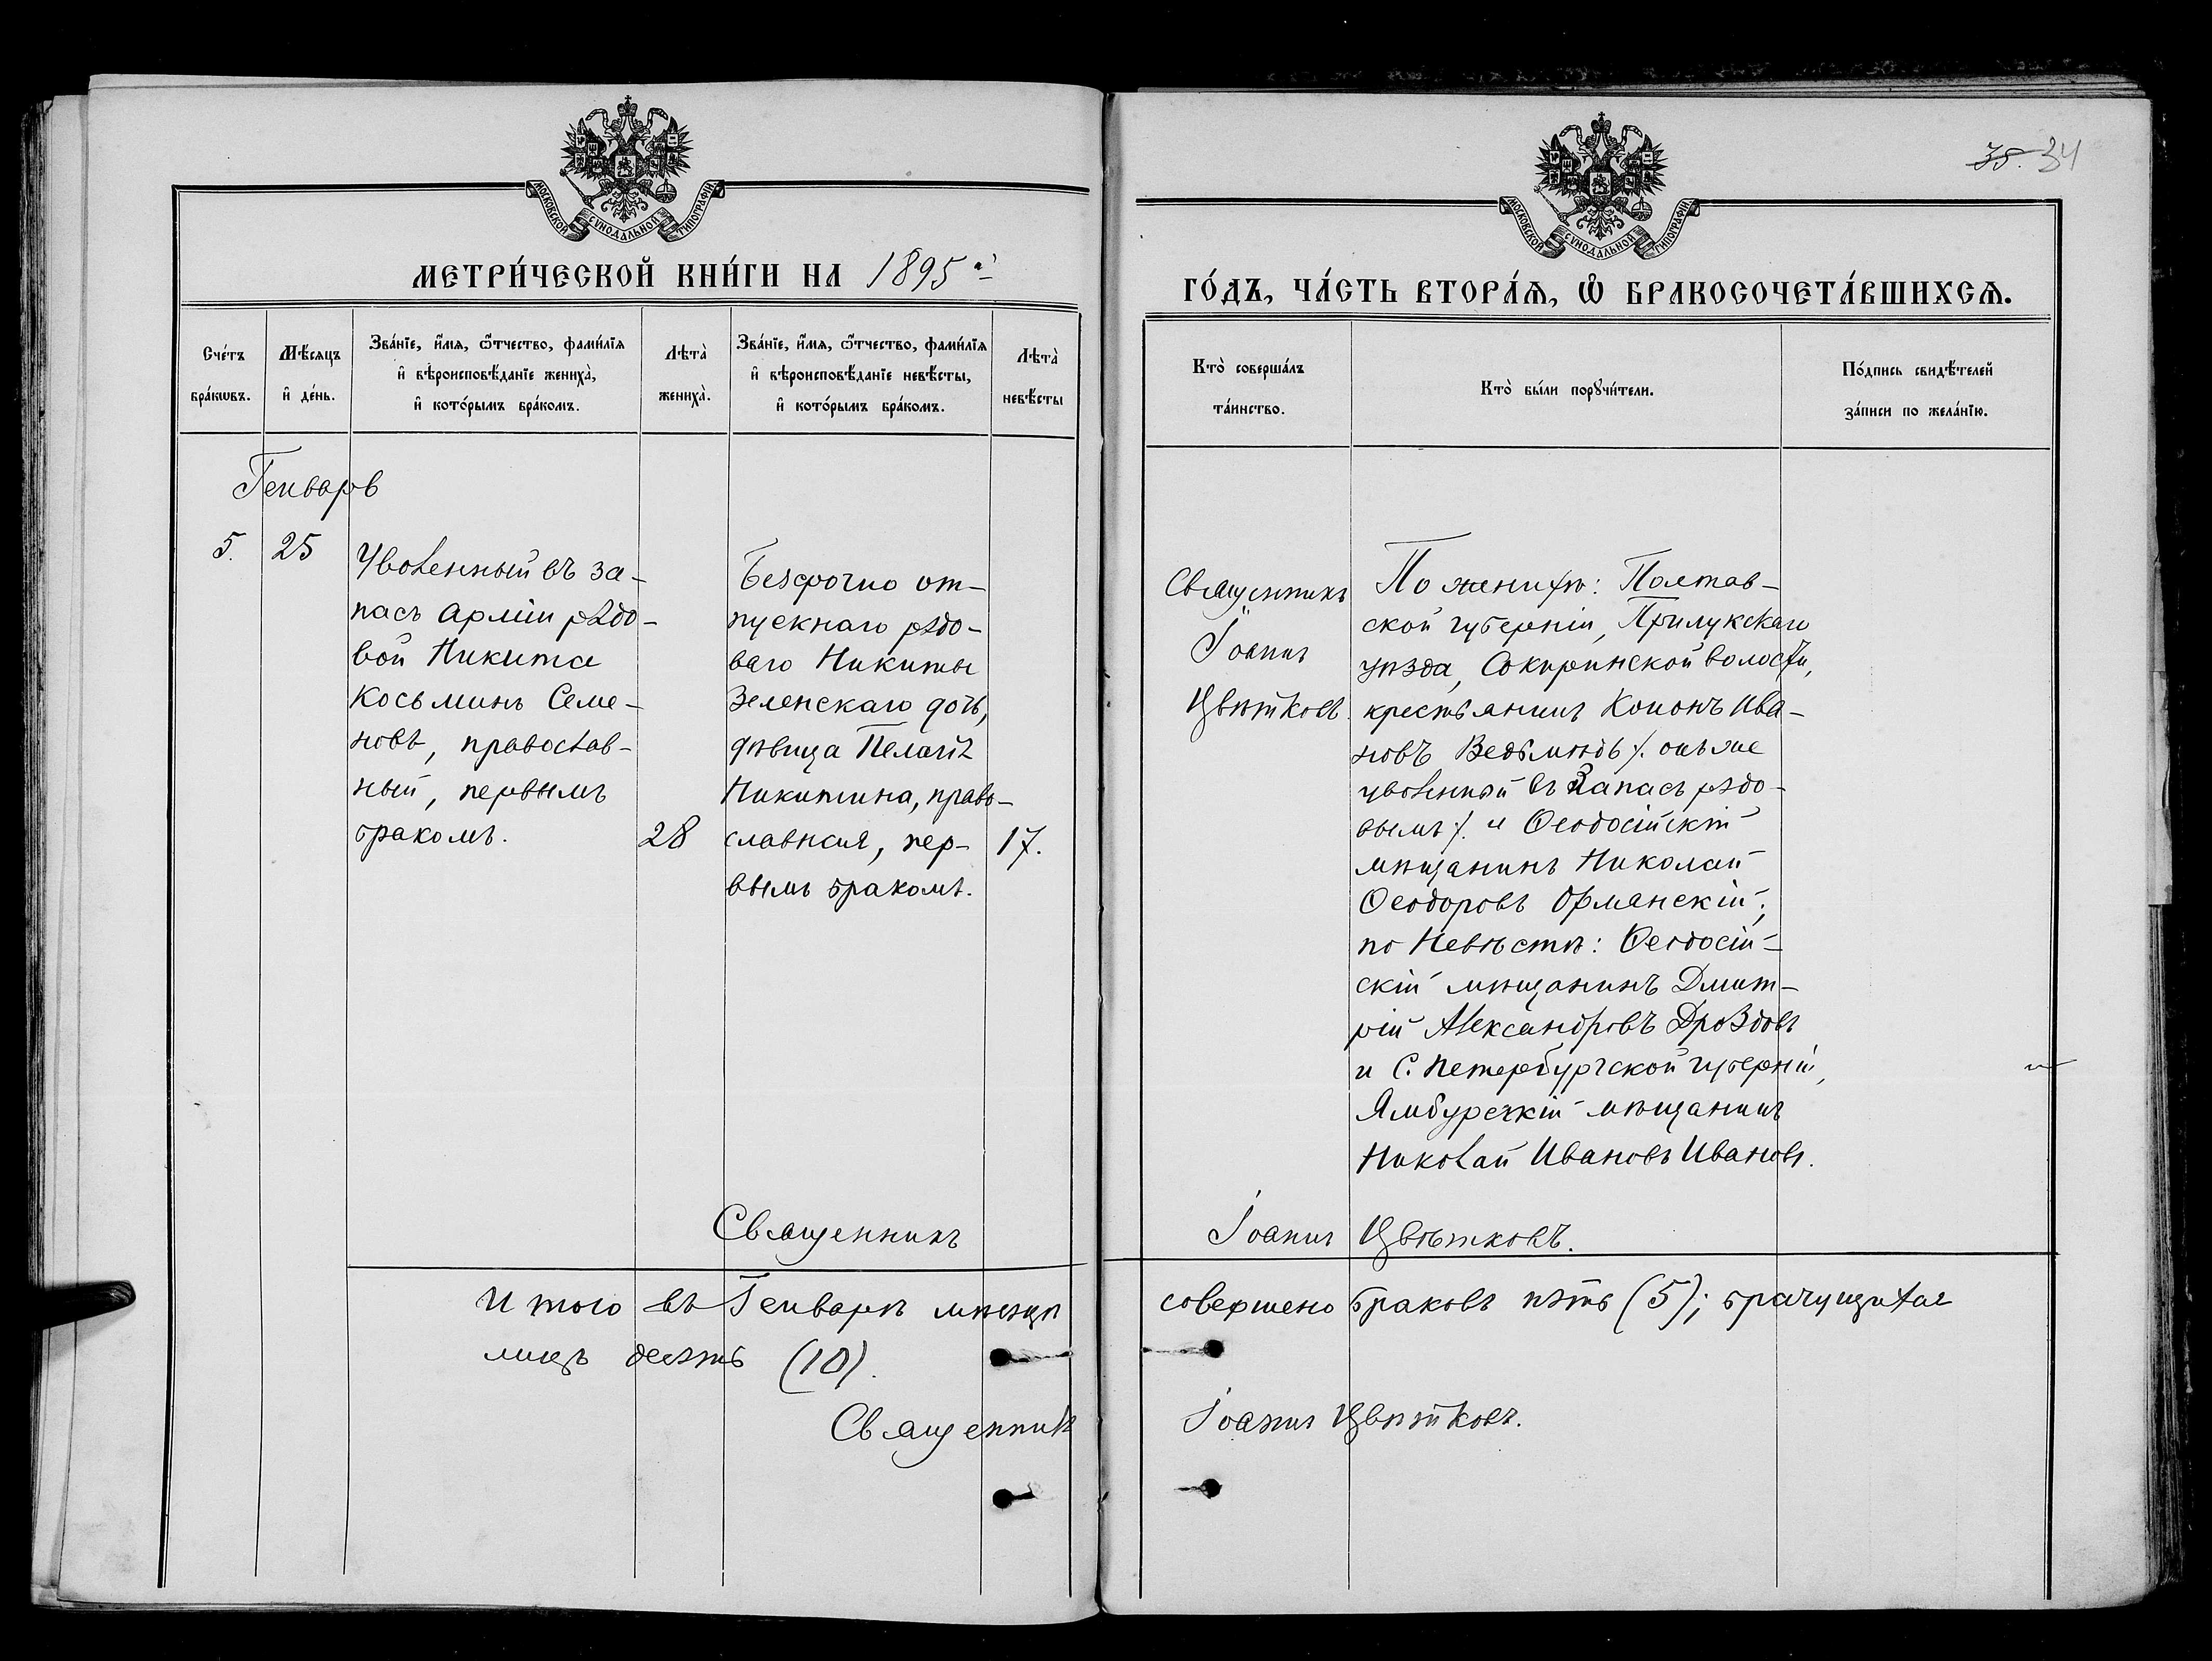 35. 34
МОСКОВСКОЙ СѴНОДАЛЬНОЙ ТИПОГРАФІИ
МОСКОВСКОЙ СѴНОДАЛЬНОЙ ТИПОГРАФІИ
МЕТРИ́ЧЕСКОЙ КНИ́ГИ НА 1895 й
ГО́ДЪ, ЧА́СТЬ ВТОРА́Ѧ, Ѽ БРАКОСОЧЕТА́ВШИХСѦ.
Сче́тъ
бра́кѡвъ.
Мѣ́сяцъ
и҆ де́нь.
Зва́нїе, и҆́мѧ, ѿтчество, фами́лїѧ
и҆ вѣроисповѣ́данїе жениха̀,
и҆ кото́рымъ бра́комъ.
Лѣта̀
жениха̀.
Зва́нїе, и҆́мѧ, ѿтчество, фами́лїѧ
и҆ вѣроисповѣ́данїе невѣ́сты,
и҆ кото́рымъ бра́комъ.
Лѣта̀
невѣ́сты
Кто̀ соверша́лъ
та́инство.
Кто̀ бы́ли порꙋчи́тели.
По́дпись свидѣ́телей
за́писи по жела́нїю.
Генварь
5.
25
Уволенный въ за-
пасъ арміи рядо-
вой Никита
Косьминъ Семе-
новъ, православ-
ный, первымъ
бракомъ.
28
Безсрочно от-
пускнаго рядо-
ваго Никиты
Зеленскаго дочь,
дѣвица Пелагія
Никитина, право-
славная, пер-
вымъ бракомъ.
17.
Священникъ
Іоаннъ
Цвѣтковъ.
По женихѣ: Полтав-
ской губерніи, Прилукскаго
уѣзда, Сокиринской волости,
крестьянинъ Кононъ Ива-
новъ Ведьмидь /. онъ же
уволенный въ запасъ рядо-
вымъ /. и Ѳеодосійскій
мѣщанинъ Николай
Ѳеодоровъ Орманскій;
по Невѣстѣ: Ѳеодосій-
скій мѣщанинъ Дмит-
рій Александровъ Дроздовъ
и С. Петербургской губерніи,
Ямбургскій мѣщанинъ
Николай Ивановъ Ивановъ.
Священникъ Іоаннъ Цвѣтковъ.
Итого въ Генварѣ мѣсяцѣ совершено браковъ пять (5); брачущихся
лицъ десять (10).
Священникъ Іоаннъ Цвѣтковъ.